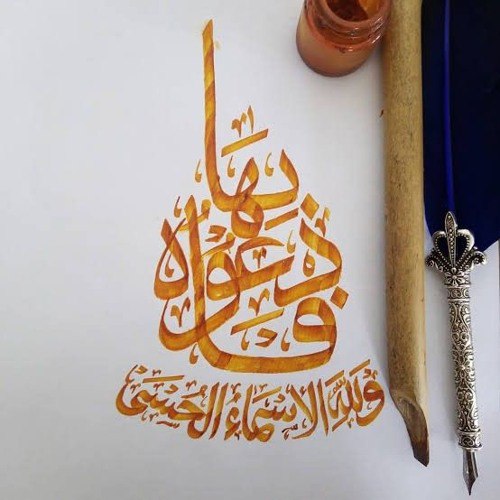 ولله الاسماء الحسنى
فادعوه
بها